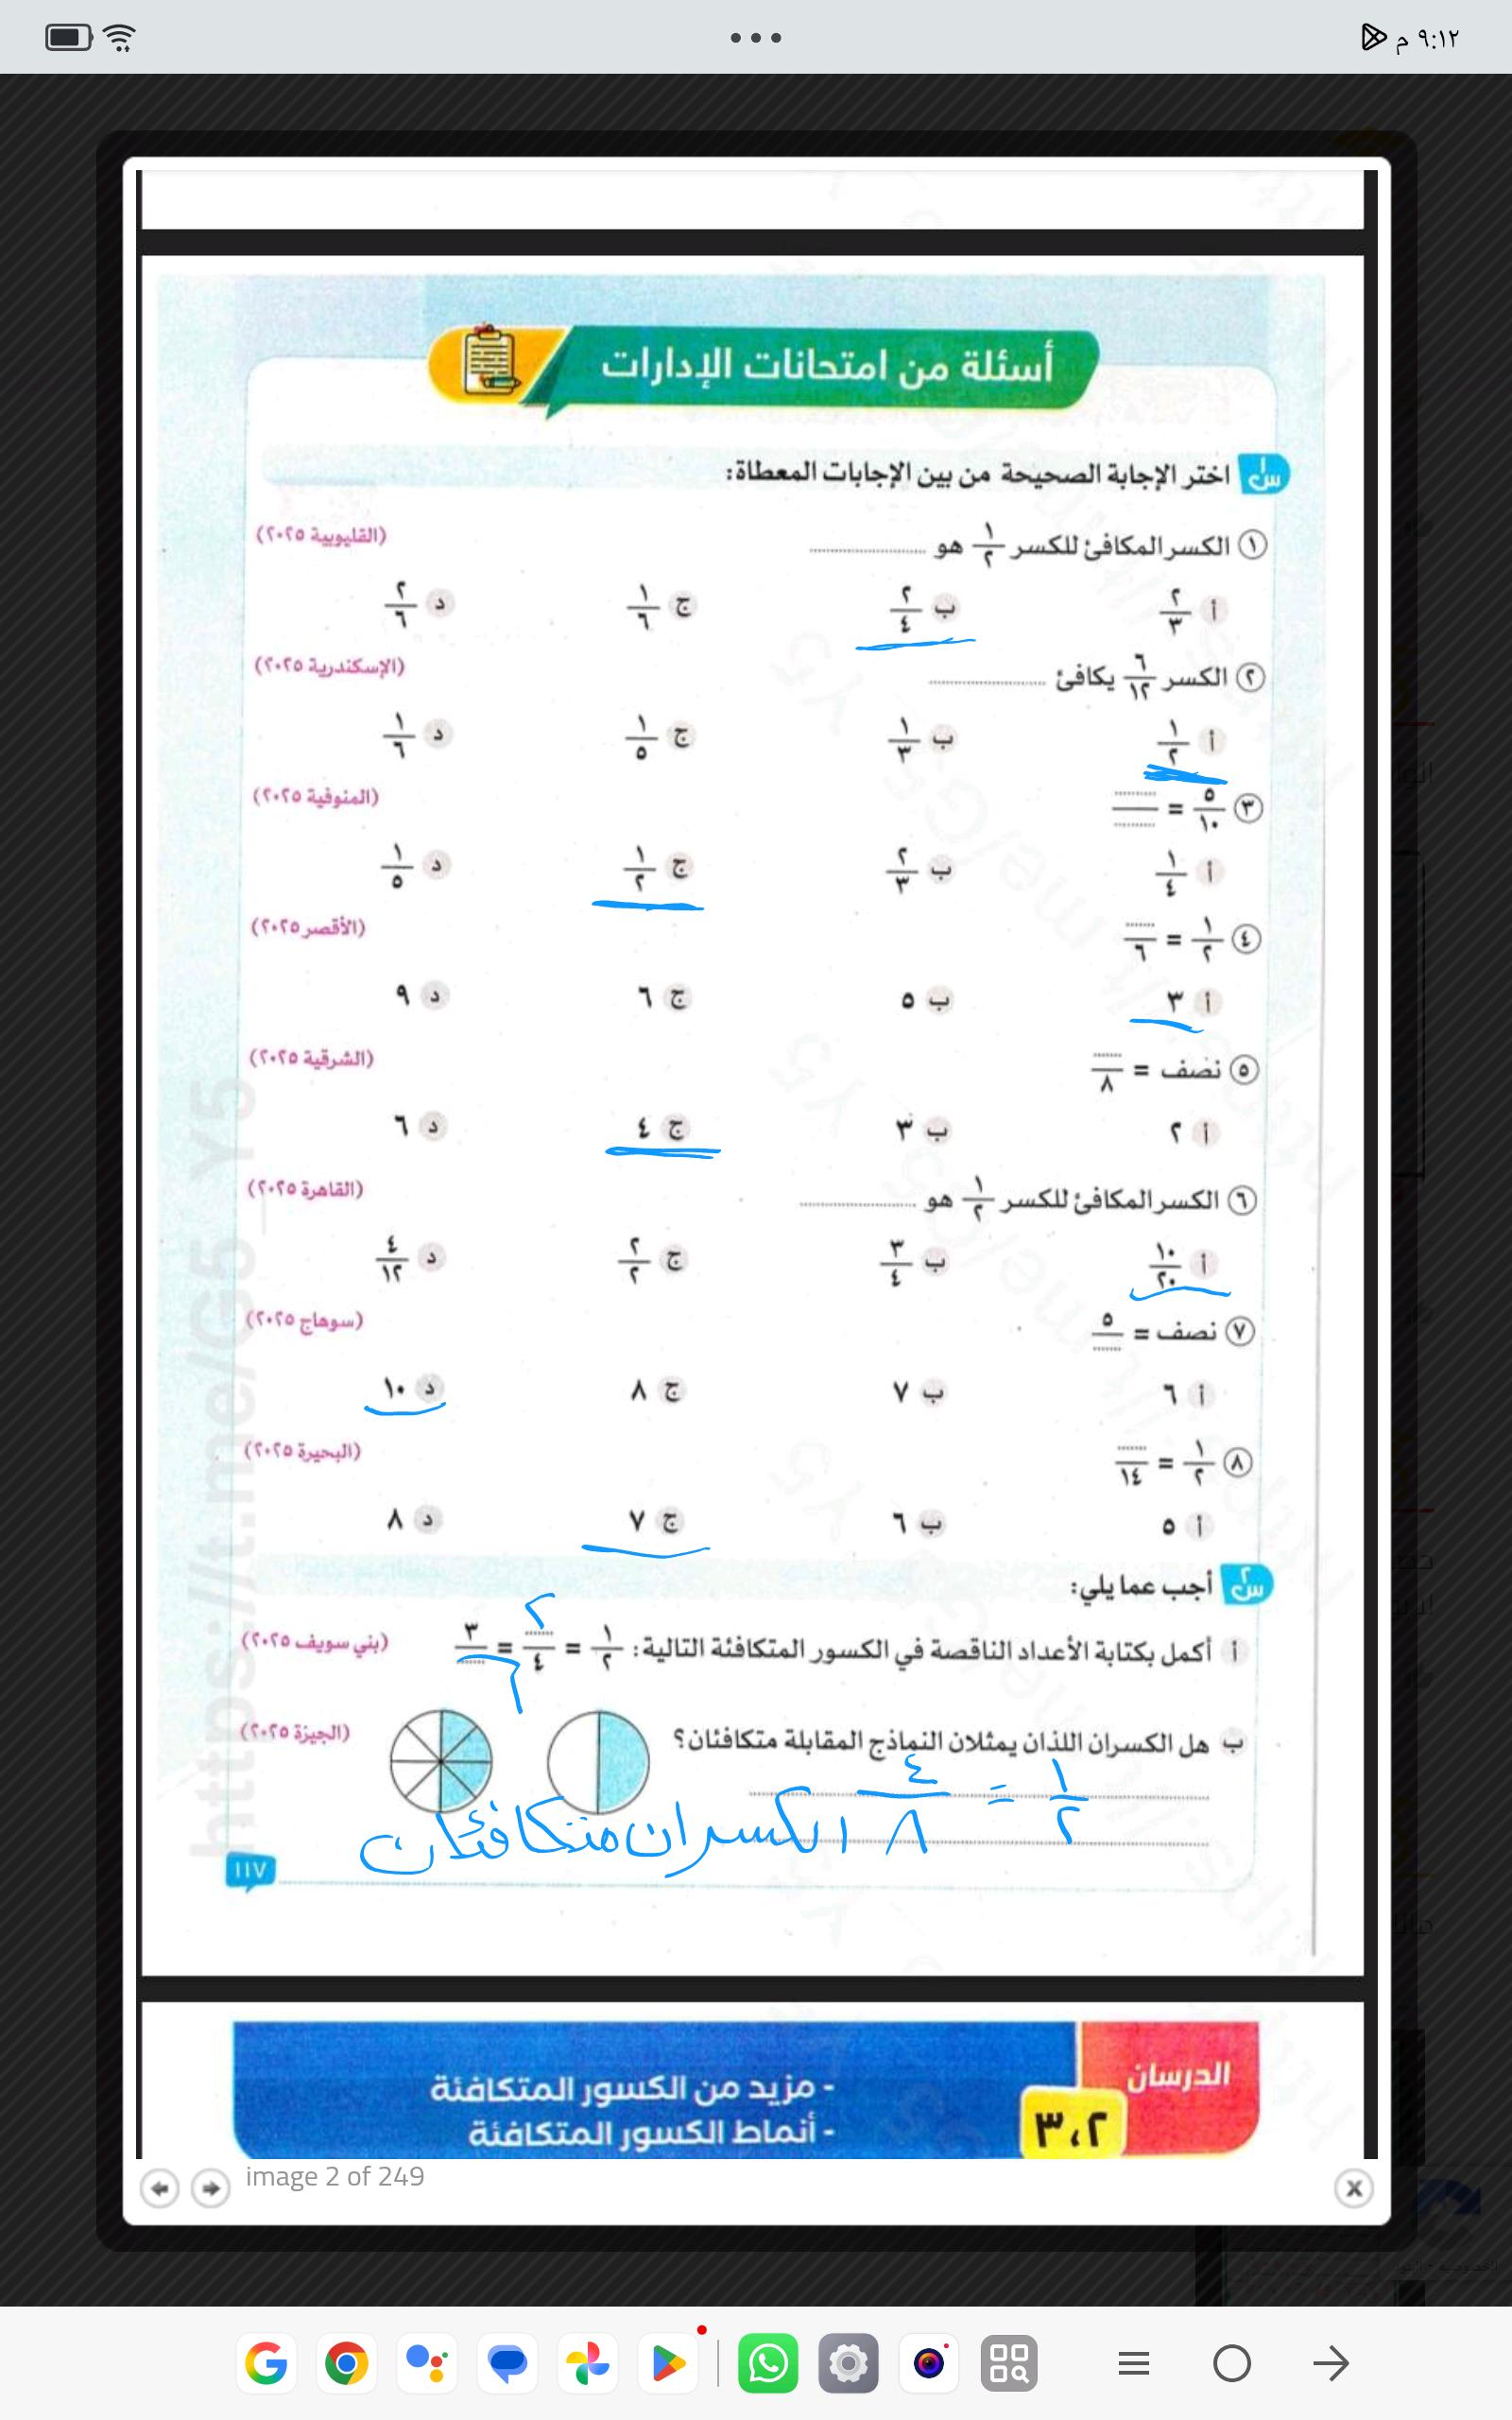 ٩:١٢ م
أسئلة من امتحانات الإدارات
س١ اختر الإجابة الصحيحة من بين الإجابات المعطاة:
١ الكسر المكافئ للكسر ١/٢ هو ............ (القليوبية ٢٠٢٥)
أ ٢/٣ ب ٢/٤ ج ١/٦ د ٢/٦
٢ الكسر ٦/١٢ يكافئ ............ (الإسكندرية ٢٠٢٥)
أ ١/٢ ب ١/٣ ج ١/٥ د ١/٦
٣ ٥/١٠ = ......../........ (المنوفية ٢٠٢٥)
أ ١/٤ ب ٢/٣ ج ١/٢ د ١/٥
٤ ١/٢ = ......../٦ (الأقصر ٢٠٢٥)
أ ٣ ب ٥ ج ٦ د ٩
٥ نصف = ......../٨ (الشرقية ٢٠٢٥)
أ ٢ ب ٣ ج ٤ د ٦
٦ الكسر المكافئ للكسر ١/٢ هو ............ (القاهرة ٢٠٢٥)
أ ١٠/٢٠ ب ٣/٤ ج ٢/٢ د ٤/١٢
٧ نصف = ٥/........ (سوهاج ٢٠٢٥)
أ ٦ ب ٧ ج ٨ د ١٠
٨ ١/٢ = ......../١٤ (البحيرة ٢٠٢٥)
أ ٥ ب ٦ ج ٧ د ٨
س٢ أجب عما يلي:
أ أكمل بكتابة الأعداد الناقصة في الكسور المتكافئة التالية: ١/٢ = ٢/٤ = ٣/٦ (بني سويف ٢٠٢٥)
ب هل الكسران اللذان يمثلان النماذج المقابلة متكافئان؟ (الجيزة ٢٠٢٥)
١/٢ = ٤/٨ الكسران متكافئان
١١٧
https://t.me/G5_Y5
الدرسان
٣،٢
- مزيد من الكسور المتكافئة
- أنماط الكسور المتكافئة
image 2 of 249